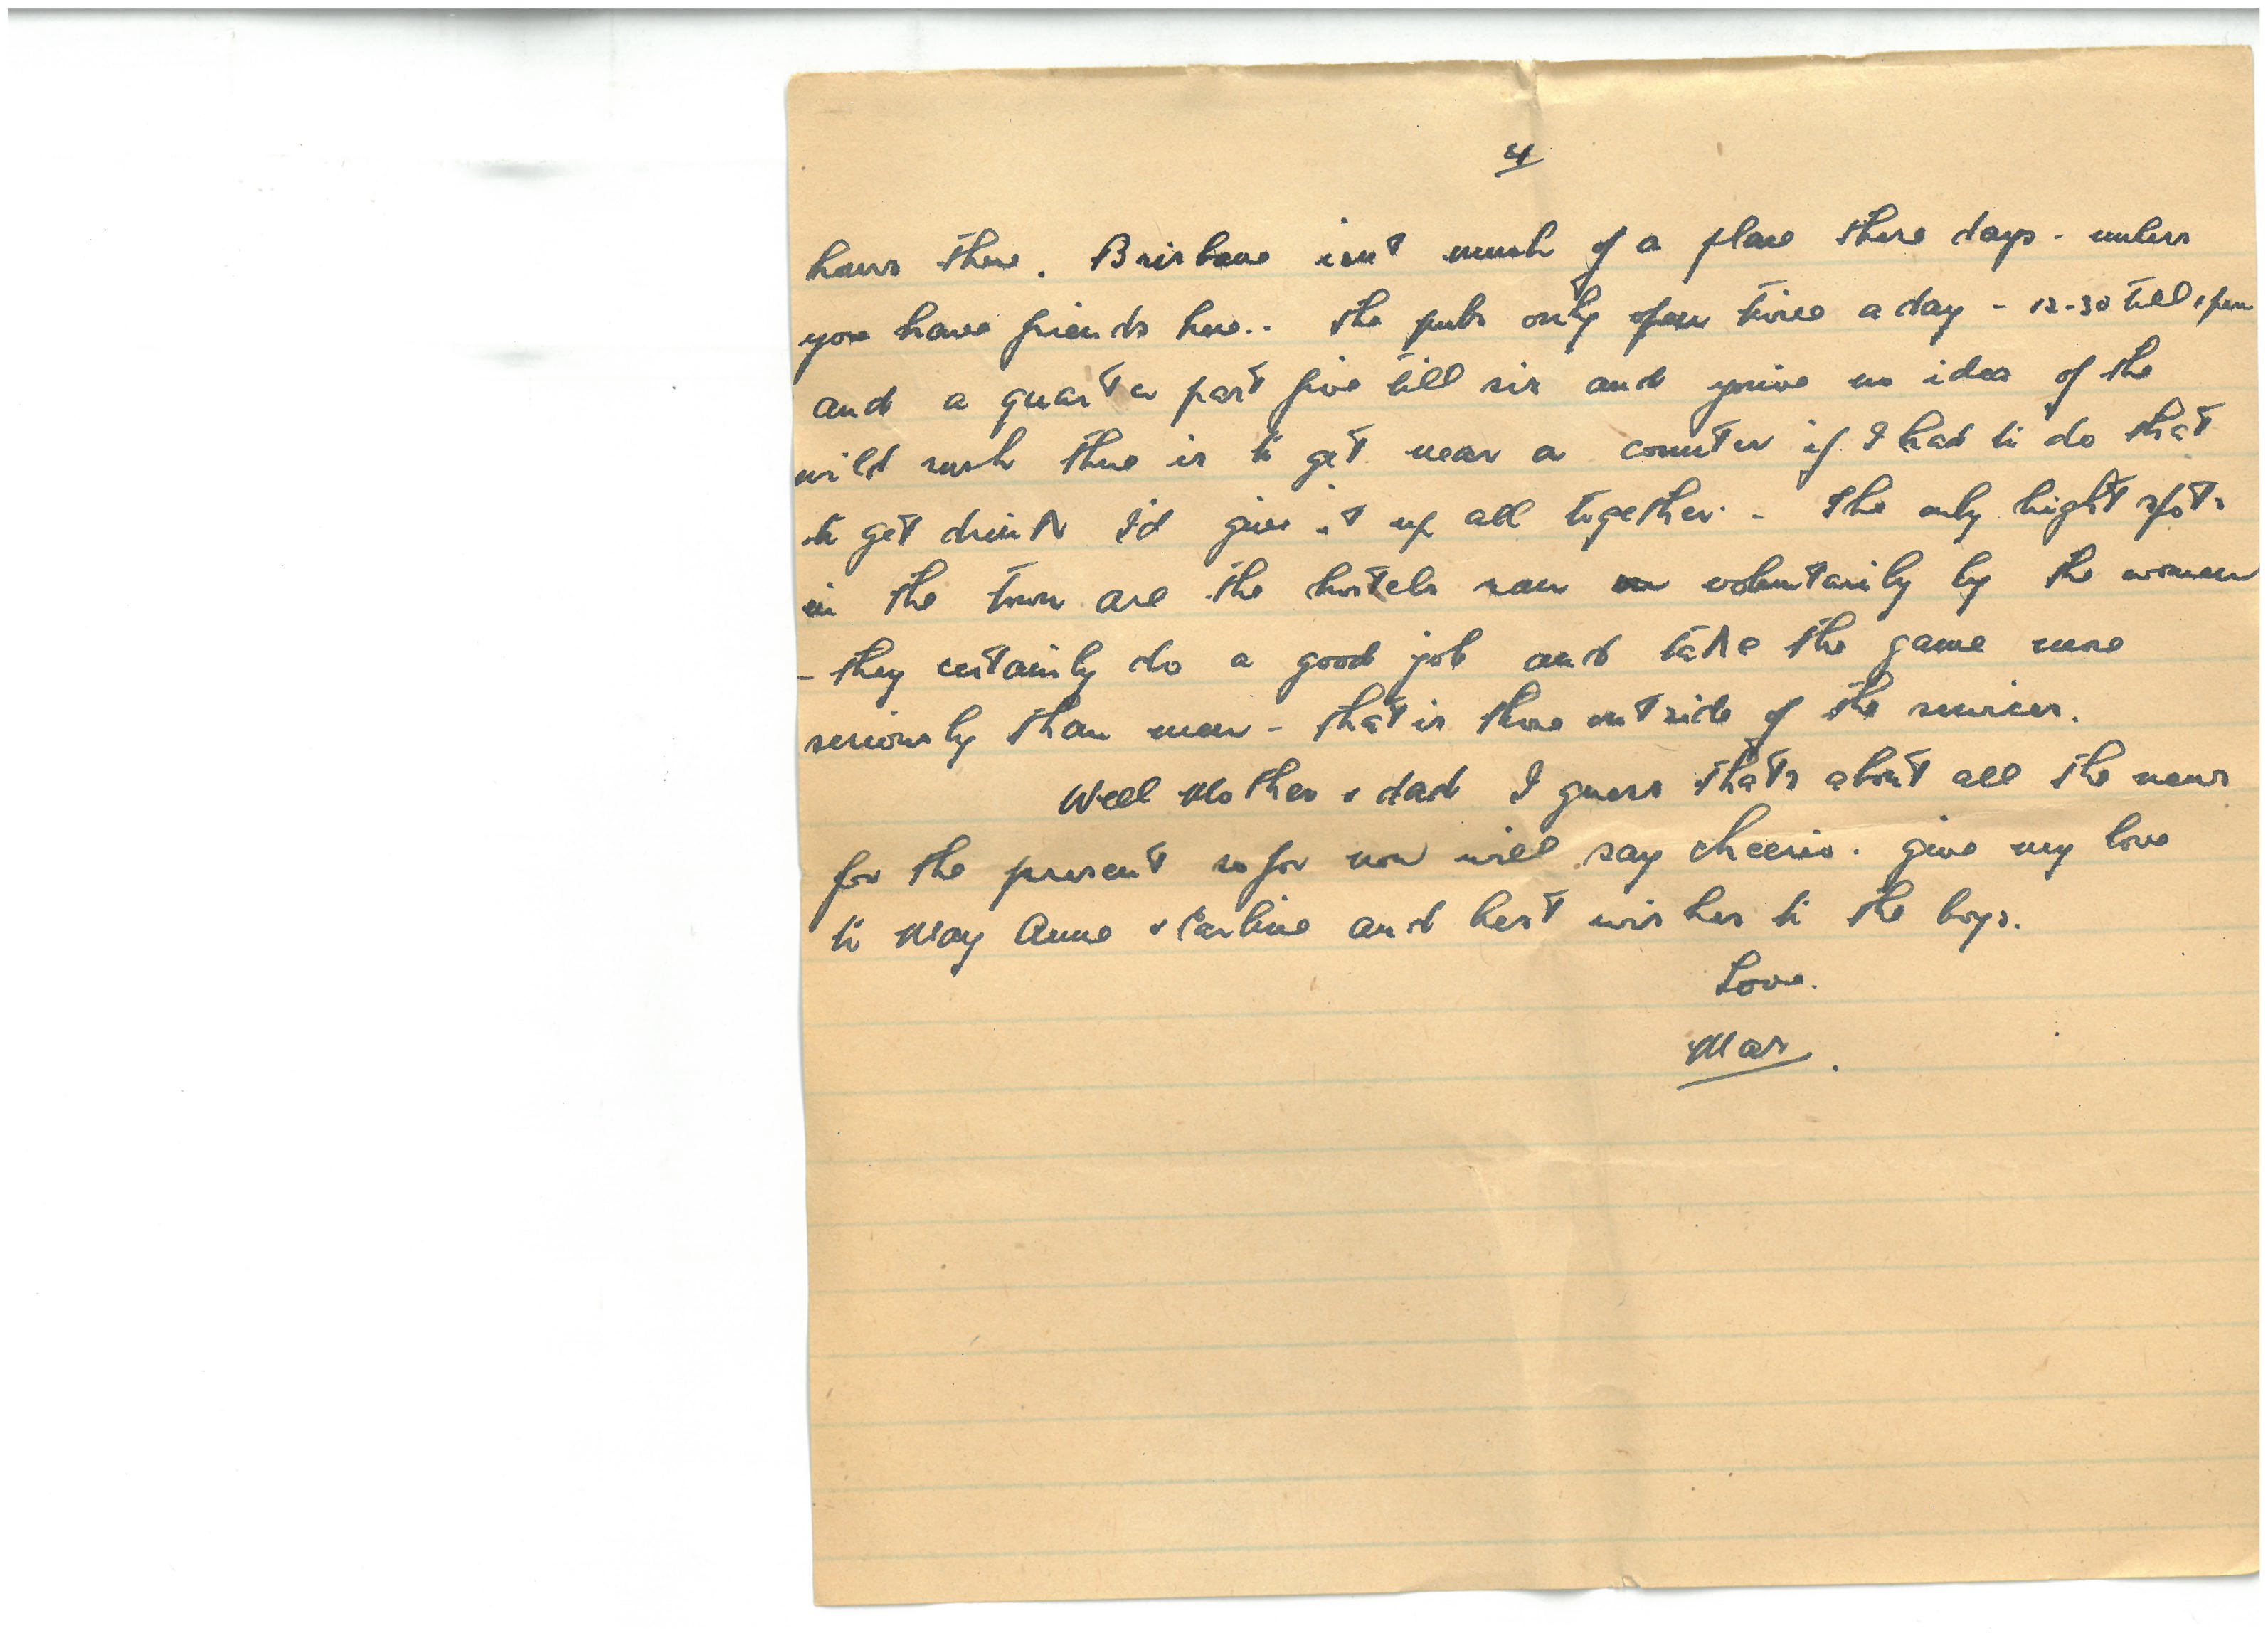 4
hours there. Brisbane isn't much of a place these days - unless
you have friends here.. The pubs only open twice a day - 12-30 till 1 pm
and a quarter past five till six and you've no idea of the
wild rush there is to get near a counter if I had to do that
to get drink I'd give it up all together. - The only bright spots
in the town are the hostels run voluntarily by the women
- they certainly do a good job and take the game more
seriously than men - that is those outside of the services.
Well Mother & dad I guess thats about all the news
for the present so for now will say cheerio. give my love
to May Anne & and best wishes to the boys.
Love.
Mas.